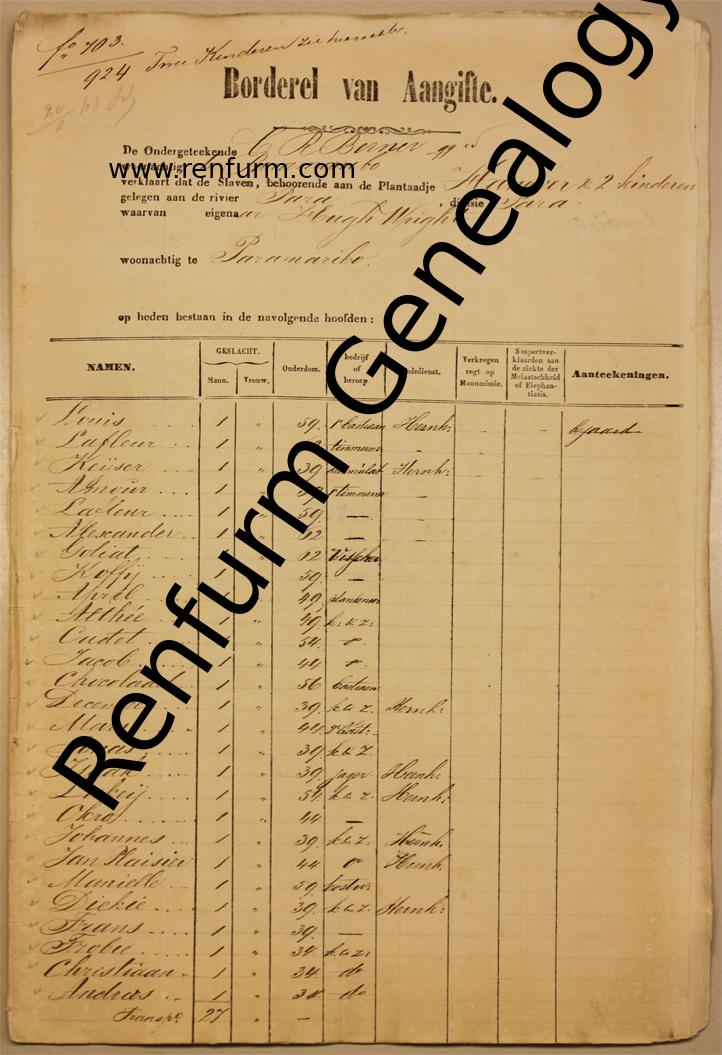 fo 703.
924 Twee Kinderen zie hieronder.
Borderel van Aangifte.
De Ondergeteekende C R Berner qq
www.renfurm.com
verklaart dat de Slaven, behoorende aan de Plantaadje & 2 kinderen
gelegen aan de rivier Para , divisie Para
waarvan eigenaar Hugh Wright
woonachtig te Paramaribo.
op heden bestaan in de navolgende hoofden:
NAMEN. GESLACHT. Mann. Vrouw. Ouderdom. bedrijf of beroep dsdienst. Verkregen regt op Manumissie. Suspectverklaarden aan de ziekte der Melaatschheid of Elephantiasis. Aanteekeningen.
Louis 1 " 59. 1e bastiaan Hernh: - - bejaard
Lafleur 1 " timmerm
Keijser 1 " 39 Hernh: - -
Amour 1 " timmerm -
Lafleur 1 " 59. — -
Alexander 1 " 12 — -
Goliat 1 " 12 Visscher
Koffij 1 " 59. —
April 1 " 49.
Althée 1 " 49. k: & z:
Cudot 1 " 54. do
Jacob 1 " 44 do
Chocolaad 1 " 56 bastiaan
December 1 " 39. k & z. Hernh:
Mars 1 " 44.
1 " 39. k & z.
1 " 39. jager Hernh:
1 " 54. k & z. Hernh:
Okro 1 " 44 —
Johannes 1 " 39. k & z. Hernh.
Jan Plaisier 1 " 44 do Hernh.
Manielle 1 " 59.
Diekie 1 " 39. k & z. Hernh:
Frans 1 " 39. —
Frobie 1 " 34. k & z:
Christiaan 1 " 34. do
Andries 1 " 34 do
Transp. 27 " —
Renfurm Genealogy